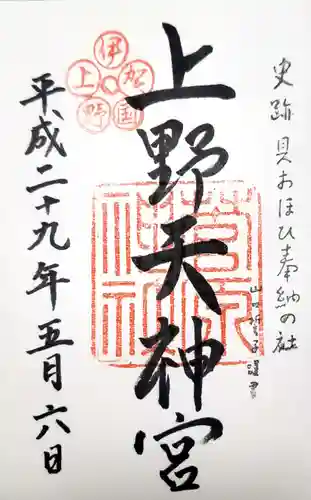 史跡 貝おほひ奉納の社
上野天神宮
伊賀国上野
菅原神社
平成二十九年五月六日